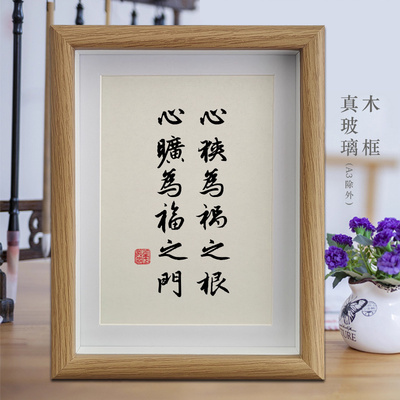 心狭為禍之根
心曠為福之門
木框
真玻璃(A3除外)